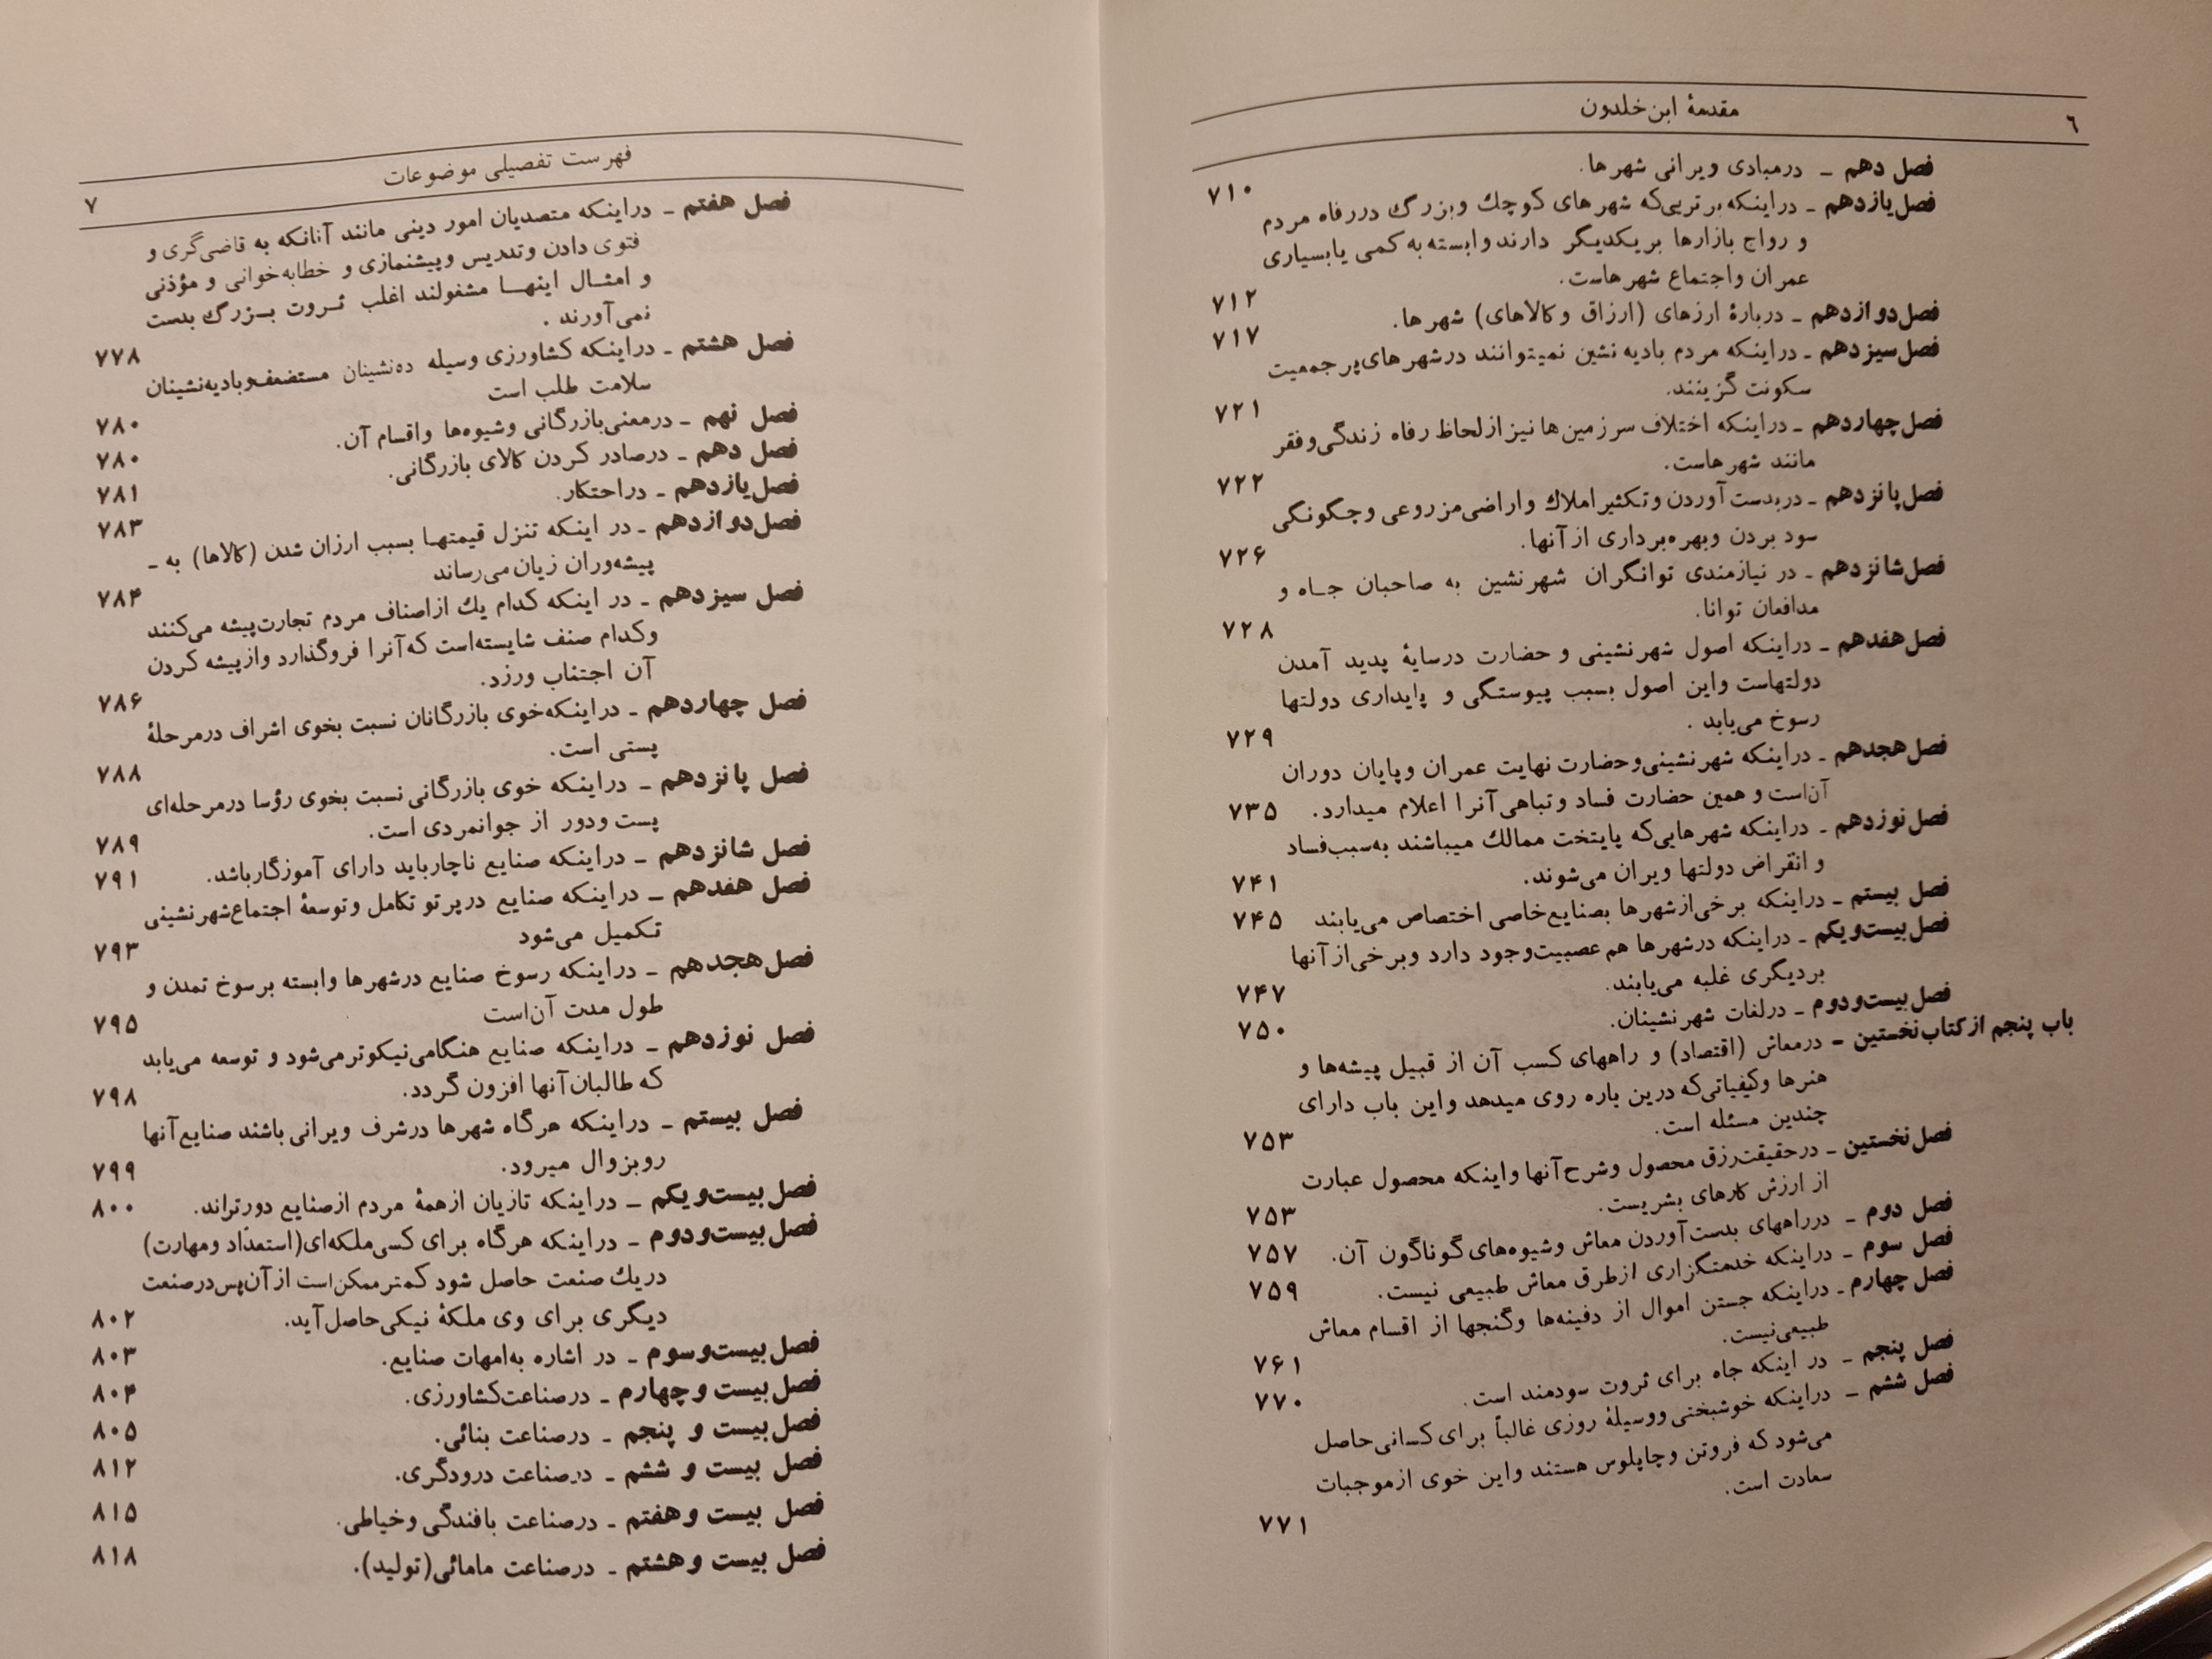 ٦
مقدمهٔ ابن‌خلدون
فصل دهم – درمبادی ویرانی شهرها. ۷۱۰
فصل یازدهم – دراینکه برتریی‌که شهرهای کوچك وبزرگ دررفاه مردم
و رواج بازارها بریکدیگر دارند وابسته به کمی یابسیاری
عمران واجتماع شهرهاست. ۷۱۲
فصل دوازدهم – دربارهٔ ارزهای (ارزاق وکالاهای) شهرها. ۷۱۷
فصل سیزدهم – دراینکه مردم بادیه نشین نمیتوانند درشهرهای پرجمعیت
سکونت گزینند. ۷۲۱
فصل چهاردهم – دراینکه اختلاف سرزمین‌ها نیز ازلحاظ رفاه زندگی وفقر
مانند شهرهاست. ۷۲۲
فصل پانزدهم – دربدست آوردن وتکثیر املاك واراضی مزروعی وچگونگی
سود بردن وبهره‌برداری از آنها. ۷۲۶
فصل شانزدهم – در نیازمندی توانگران شهرنشین به صاحبان جاه و
مدافعان توانا. ۷۲۸
فصل هفدهم – دراینکه اصول شهرنشینی و حضارت درسایهٔ پدید آمدن
دولتهاست واین اصول بسبب پیوستگی و پایداری دولتها
رسوخ می‌یابد . ۷۲۹
فصل هجدهم – دراینکه شهرنشینی وحضارت نهایت عمران وپایان دوران
آن‌است و همین حضارت فساد وتباهی آنرا اعلام میدارد. ۷۳۵
فصل نوزدهم – دراینکه شهرهایی‌که پایتخت ممالك میباشند به‌سبب‌فساد
و انقراض دولتها ویران می‌شوند. ۷۴۱
فصل بیستم – دراینکه برخی‌ازشهرها بصنایع خاصی اختصاص می‌یابند ۷۴۵
فصل بیست‌ویکم – دراینکه درشهرها هم عصبیت‌وجود دارد وبرخی‌ازآنها
بردیگری غلبه می‌یابند. ۷۴۷
فصل بیست‌ودوم – درلغات شهرنشینان. ۷۵۰
باب پنجم ازکتاب نخستین – درمعاش (اقتصاد) و راههای کسب آن از قبیل پیشه‌ها و
هنرها وکیفیاتی‌که درین باره روی میدهد واین باب دارای
چندین مسئله است. ۷۵۳
فصل نخستین – درحقیقت‌رزق محصول وشرح آنها واینکه محصول عبارت
از ارزش کارهای بشریست. ۷۵۳
فصل دوم – درراههای بدست‌آوردن معاش وشیوه‌های گوناگون آن. ۷۵۷
فصل سوم – دراینکه خدمتگزاری ازطرق معاش طبیعی نیست. ۷۵۹
فصل چهارم – دراینکه جستن اموال از دفینه‌ها وگنجها از اقسام معاش
طبیعی‌نیست. ۷۶۱
فصل پنجم – در اینکه جاه برای ثروت سودمند است. ۷۷۰
فصل ششم – دراینکه خوشبختی ووسیلهٔ روزی غالباً برای کسانی حاصل
می‌شود که فروتن وچاپلوس هستند واین خوی ازموجبات
سعادت است. ۷۷۱
فهرست تفصیلی موضوعات
۷
فصل هفتم – دراینکه متصدیان امور دینی مانند آنانکه به قاضی‌گری و
فتوی دادن وتدریس وپیشنمازی و خطابه‌خوانی و مؤذنی
و امثال اینها مشغولند اغلب ثروت بزرگ بدست
نمی‌آورند . ۷۷۸
فصل هشتم – دراینکه کشاورزی وسیله ده‌نشینان مستضعف‌وبادیه‌نشینان
سلامت طلب است ۷۸۰
فصل نهم – درمعنی‌بازرگانی وشیوه‌ها واقسام آن. ۷۸۰
فصل دهم – درصادر کردن کالای بازرگانی. ۷۸۱
فصل یازدهم – دراحتکار. ۷۸۳
فصل دوازدهم – در اینکه تنزل قیمتها بسبب ارزان شدن (کالاها) به –
پیشه‌وران زیان می‌رساند ۷۸۴
فصل سیزدهم – در اینکه کدام یك ازاصناف مردم تجارت‌پیشه می‌کنند
وکدام صنف شایسته‌است که‌آنرا فروگذارد وازپیشه کردن
آن اجتناب ورزد. ۷۸۶
فصل چهاردهم – دراینکه‌خوی بازرگانان نسبت بخوی اشراف درمرحلهٔ
پستی است. ۷۸۸
فصل پانزدهم – دراینکه خوی بازرگانی نسبت بخوی رؤسا درمرحله‌ای
پست ودور از جوانمردی است. ۷۸۹
فصل شانزدهم – دراینکه صنایع ناچارباید دارای آموزگارباشد. ۷۹۱
فصل هفدهم – دراینکه صنایع درپرتو تکامل وتوسعهٔ اجتماع‌شهرنشینی
تکمیل می‌شود ۷۹۳
فصل هجدهم – دراینکه رسوخ صنایع درشهرها وابسته برسوخ تمدن و
طول مدت آن‌است ۷۹۵
فصل نوزدهم – دراینکه صنایع هنگامی‌نیکوترمی‌شود و توسعه می‌یابد
که طالبان‌آنها افزون گردد. ۷۹۸
فصل بیستم – دراینکه هرگاه شهرها درشرف ویرانی باشند صنایع‌آنها
روبزوال میرود. ۷۹۹
فصل بیست‌ویکم – دراینکه تازیان ازهمهٔ مردم ازصنایع دورتراند. ۸۰۰
فصل بیست‌ودوم – دراینکه هرگاه برای کسی‌ملکه‌ای(استعداد ومهارت)
دریك صنعت حاصل شود کمترممکن‌است ازآن‌پس‌درصنعت
دیگری برای وی ملکهٔ نیکی‌حاصل‌آید. ۸۰۲
فصل بیست‌وسوم – در اشاره به‌امهات صنایع. ۸۰۳
فصل بیست وچهارم – درصناعت‌کشاورزی. ۸۰۴
فصل بیست و پنجم – درصناعت بنائی. ۸۰۵
فصل بیست و ششم – درصناعت درودگری. ۸۱۲
فصل بیست وهفتم – درصناعت بافندگی وخیاطی. ۸۱۵
فصل بیست وهشتم – درصناعت مامائی(تولید). ۸۱۸